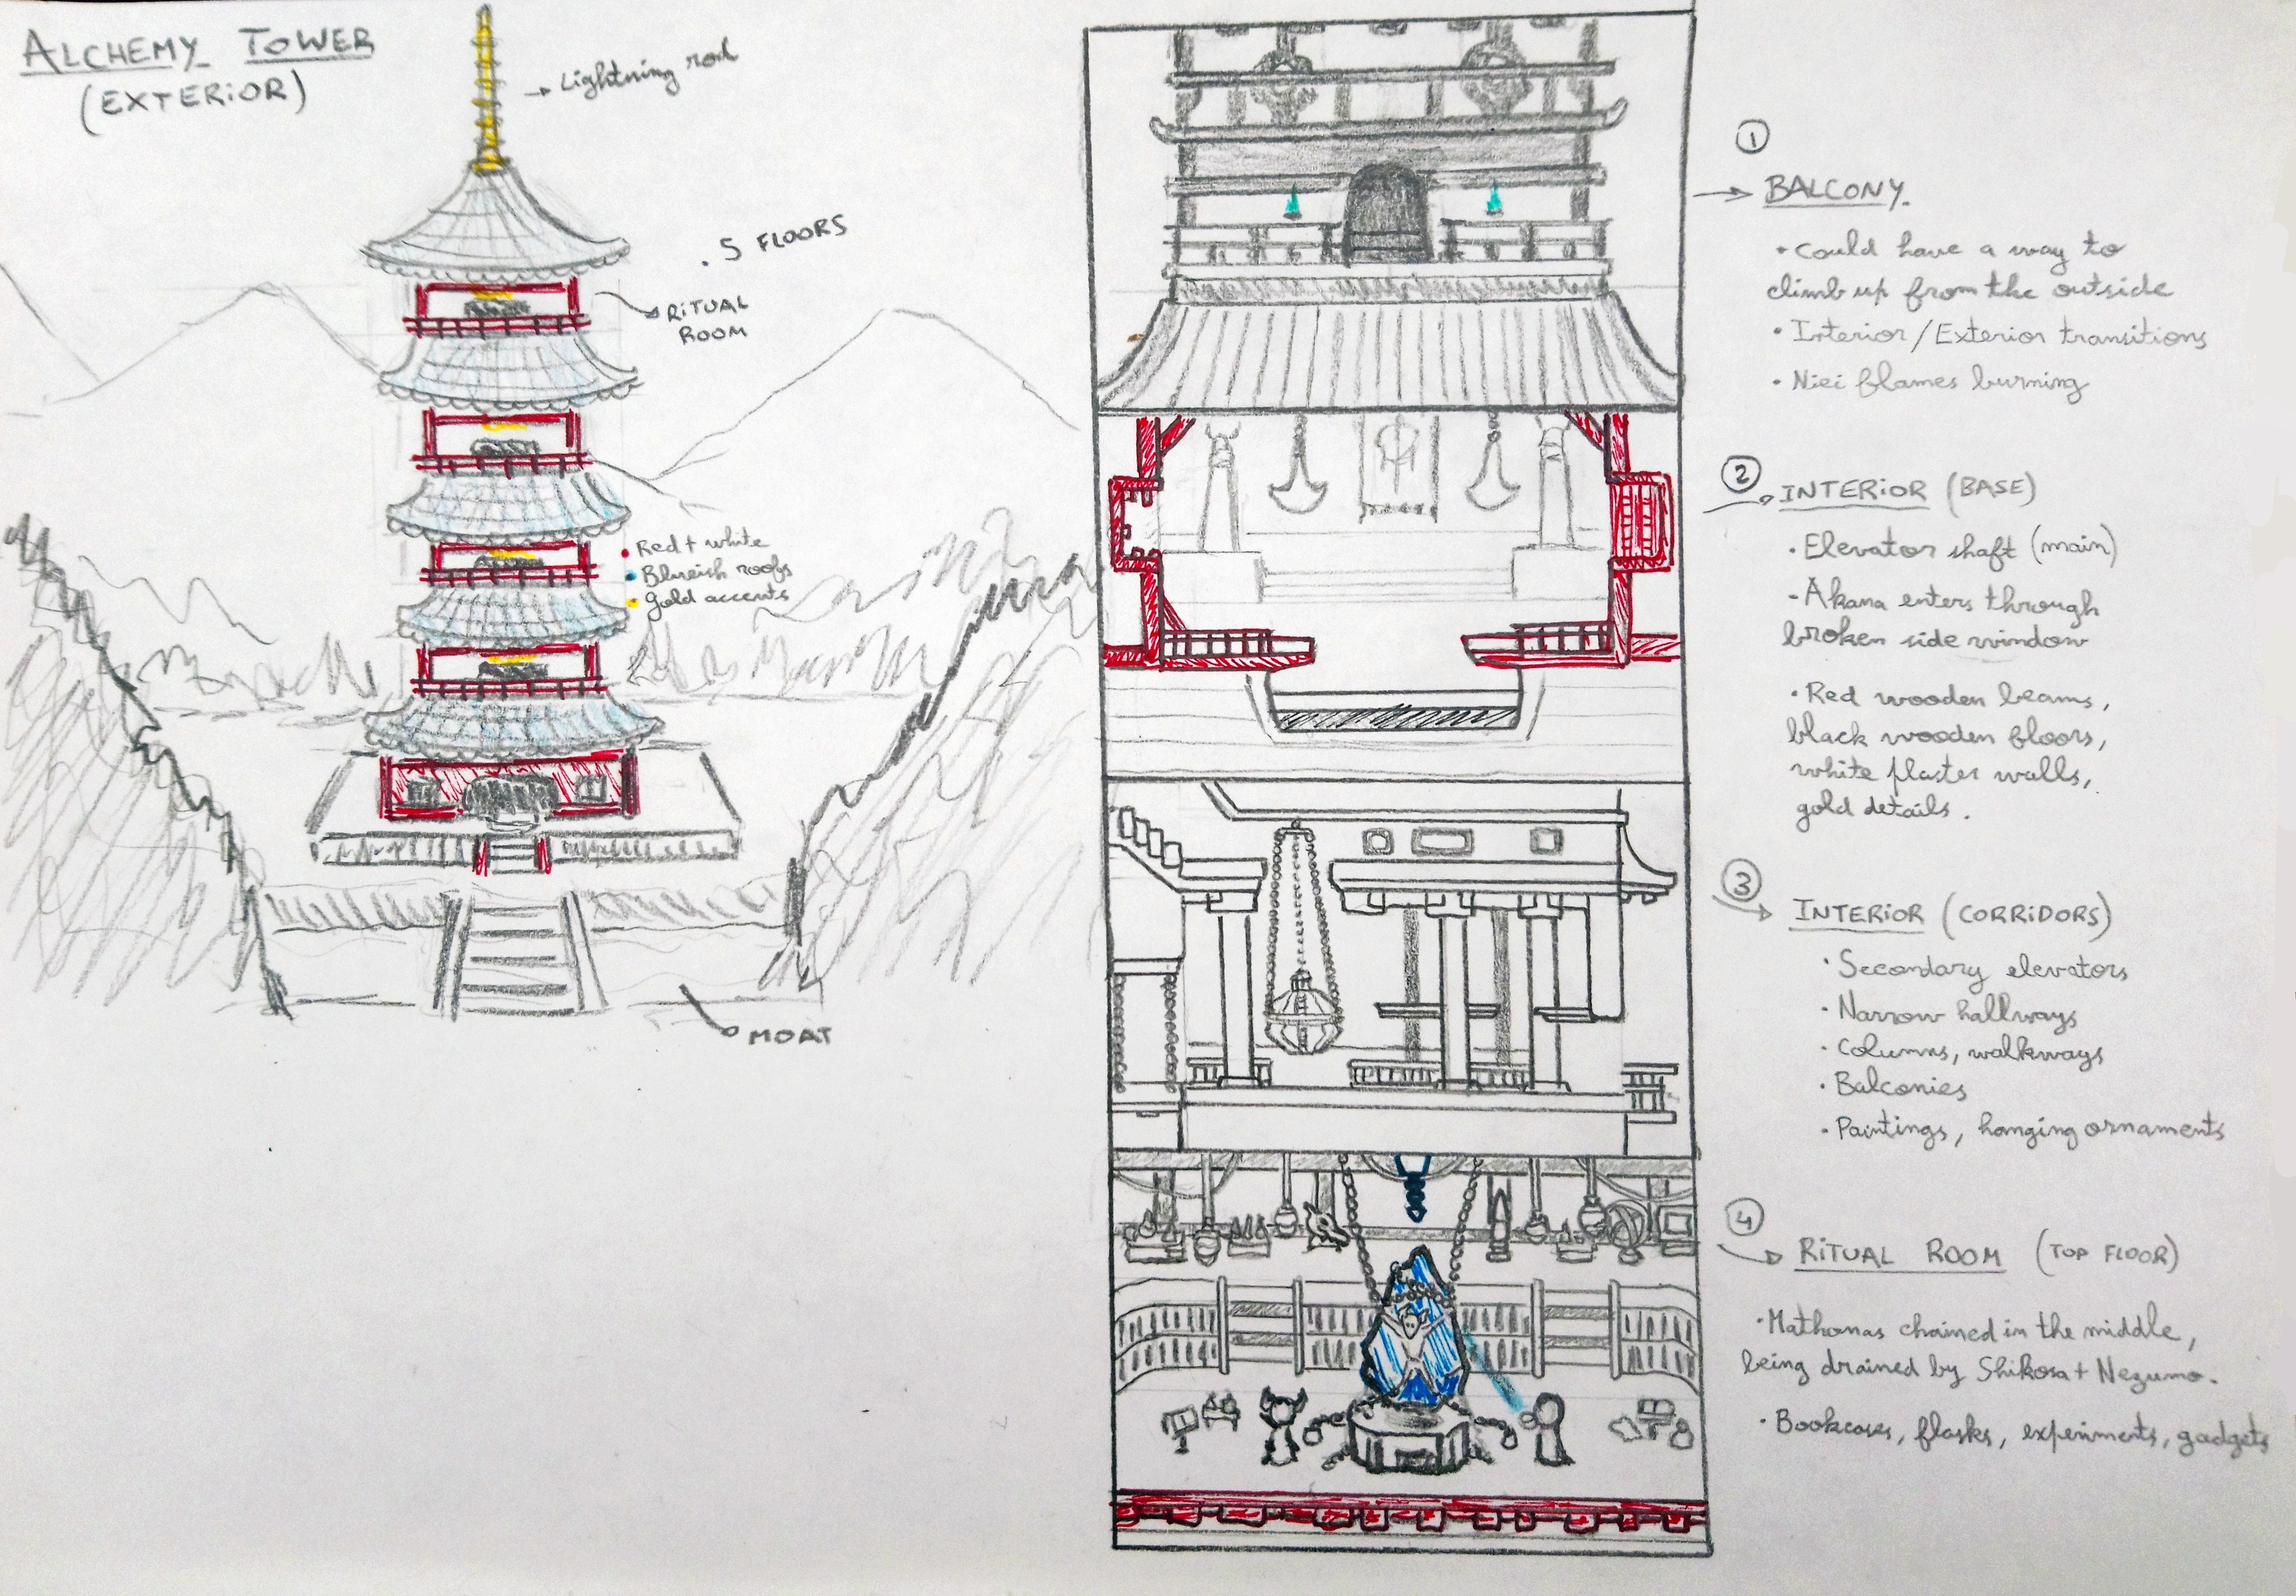 ALCHEMY TOWER
(EXTERIOR)
Lightning rod
. 5 FLOORS
RITUAL
ROOM
• Red + white
• Blueish roofs
• Gold accents
MOAT
1
BALCONY.
• Could have a way to
climb up from the outside
• Interior/Exterior transitions
• Niei flames burning
2
INTERIOR (BASE)
• Elevator shaft (main)
• Akana enters through
broken side window
• Red wooden beams,
black wooden floors,
white plaster walls,
gold details.
3
INTERIOR (CORRIDORS)
• Secondary elevators
• Narrow hallways
• Columns, walkways
• Balconies
• Paintings, hanging ornaments
4
RITUAL ROOM (TOP FLOOR)
• Mathonas chained in the middle,
being drained by Shikosa + Nezumo.
• Bookcases, flasks, experiments, gadgets